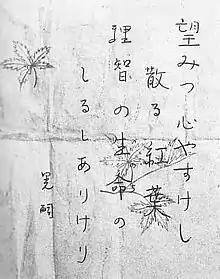 望みつ心やすけし
散る紅葉
理智の生命の
しるしありけり